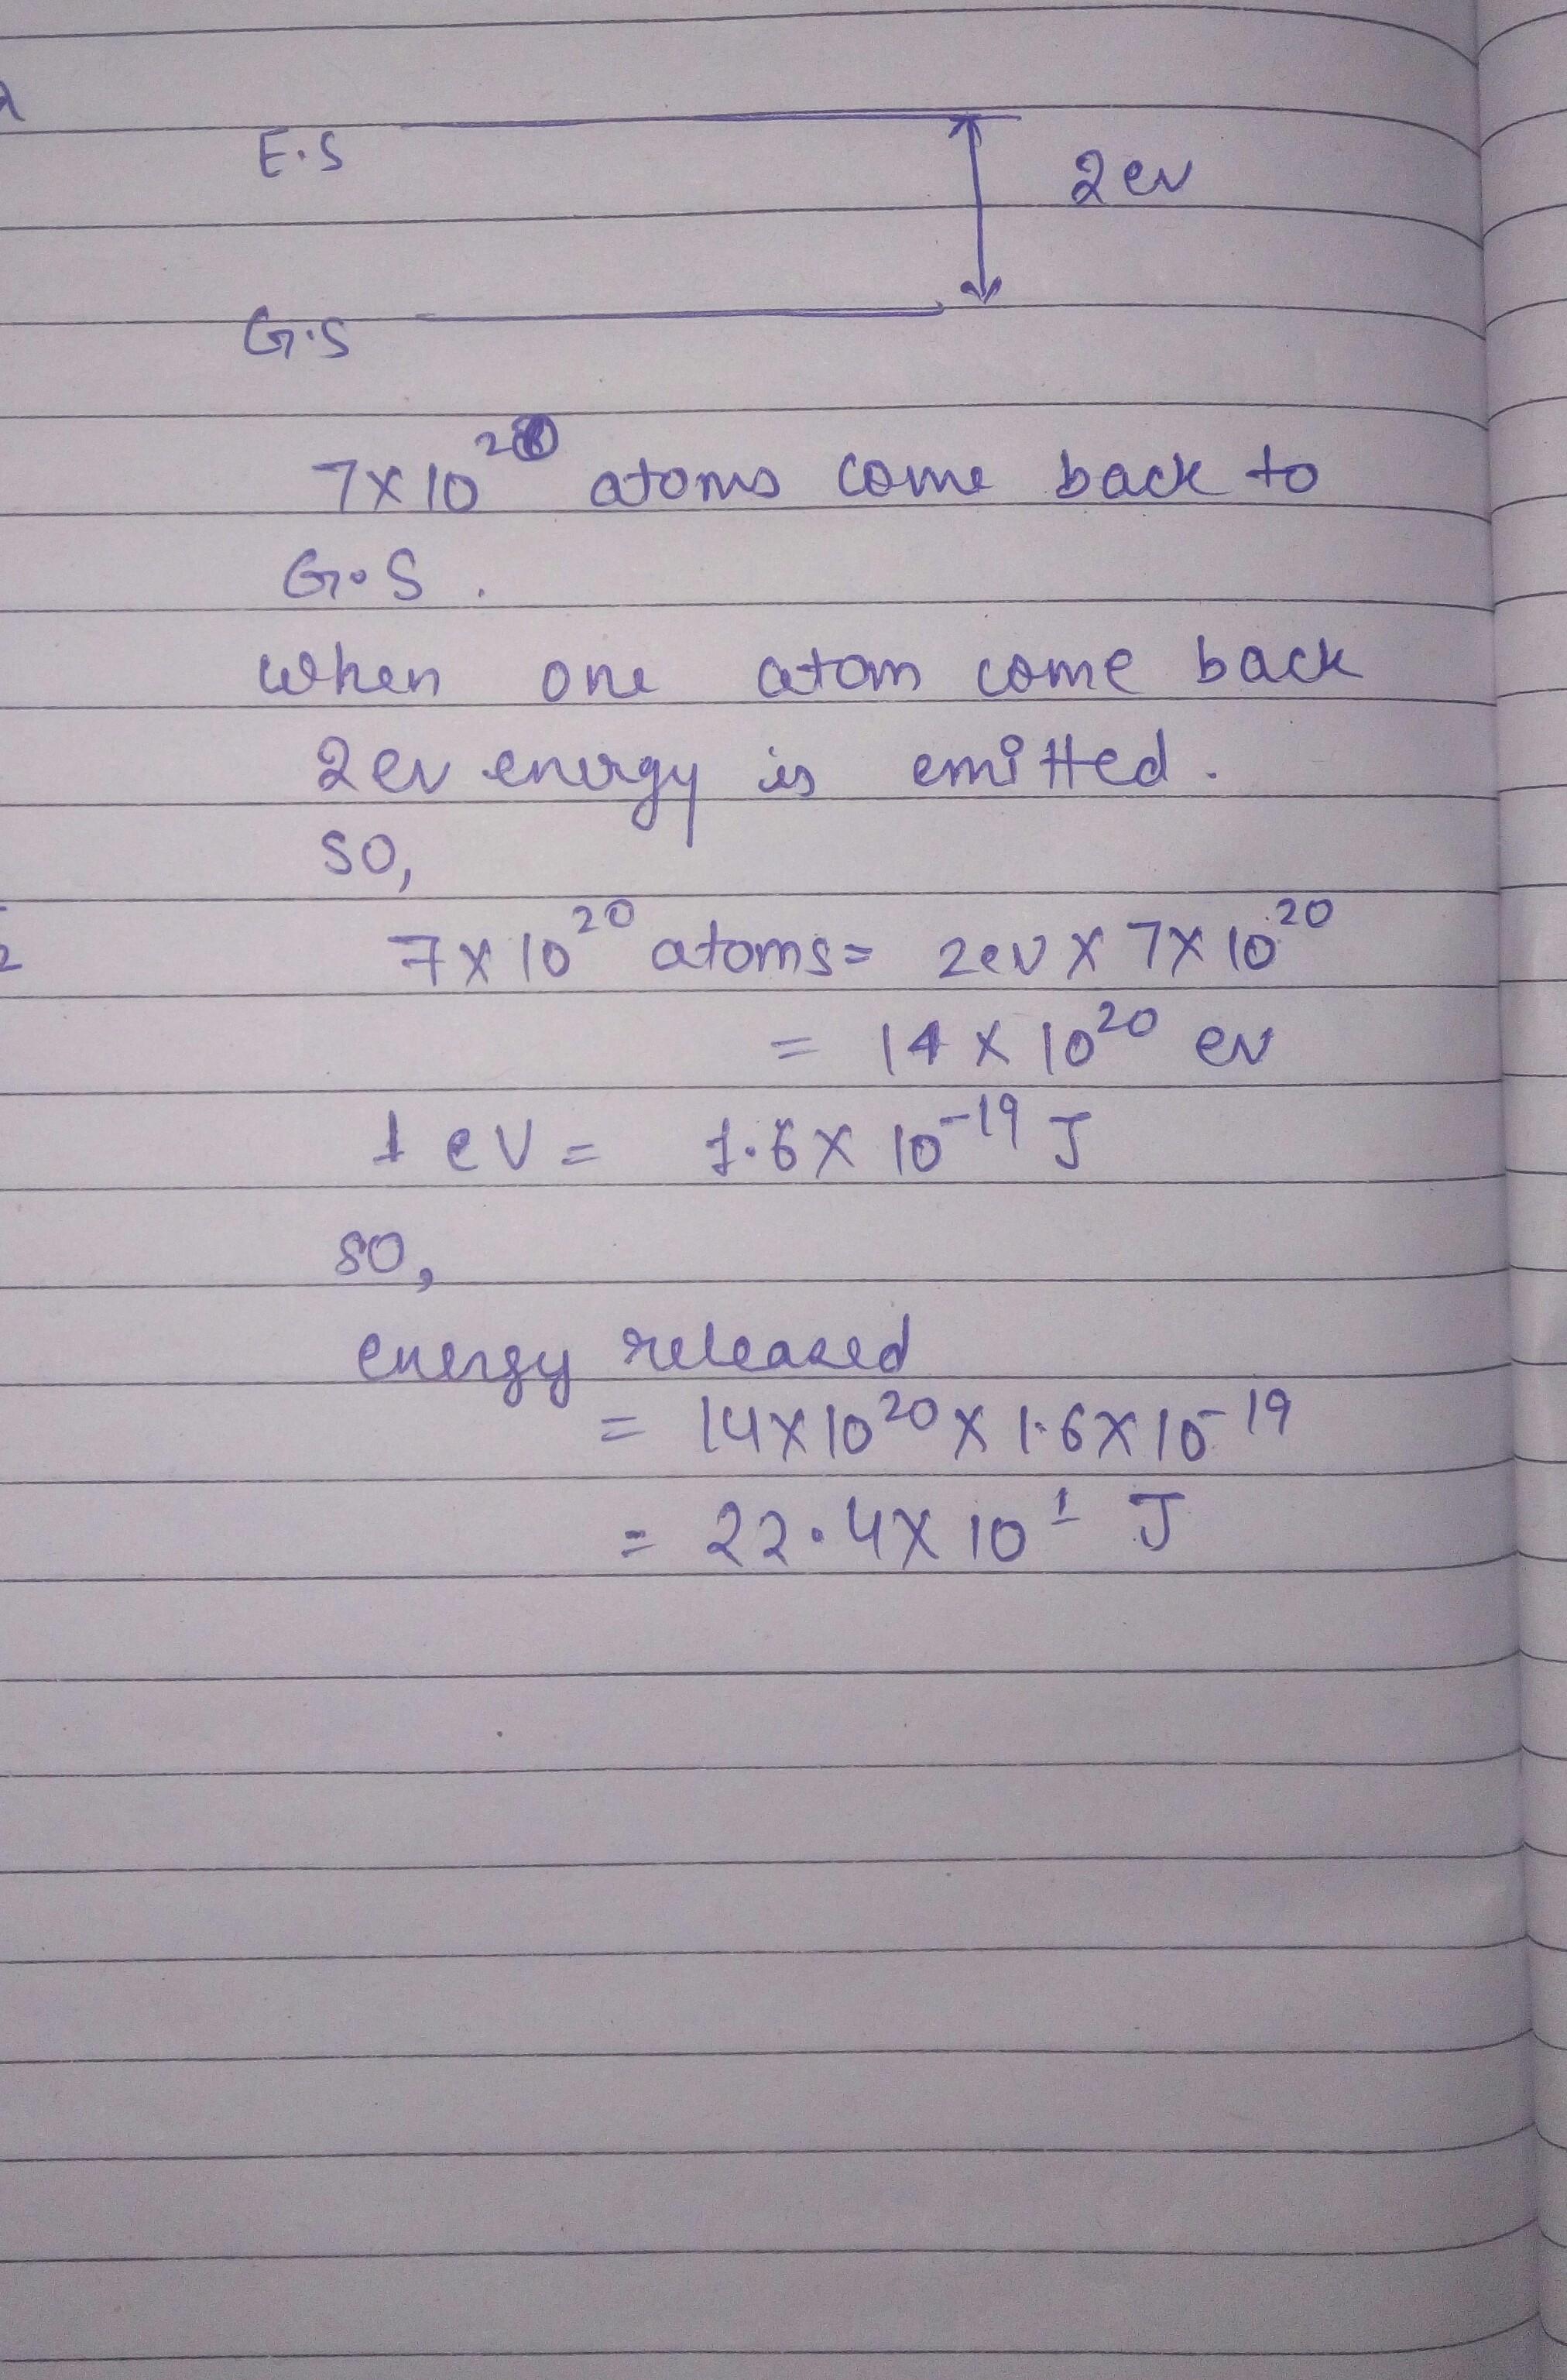 E.S
2ev
G.S
7x10 atoms come back to
G.S.
when one atom come back
2ev energy is emitted.
so,
7x10²⁰ atoms= 2ev x 7x10²⁰
= 14 x 10²⁰ ev
1 eV = 1.6x 10⁻¹⁹ J
so,
energy released
= 14x10²⁰ x 1.6x10⁻¹⁹
= 22.4x10¹ J